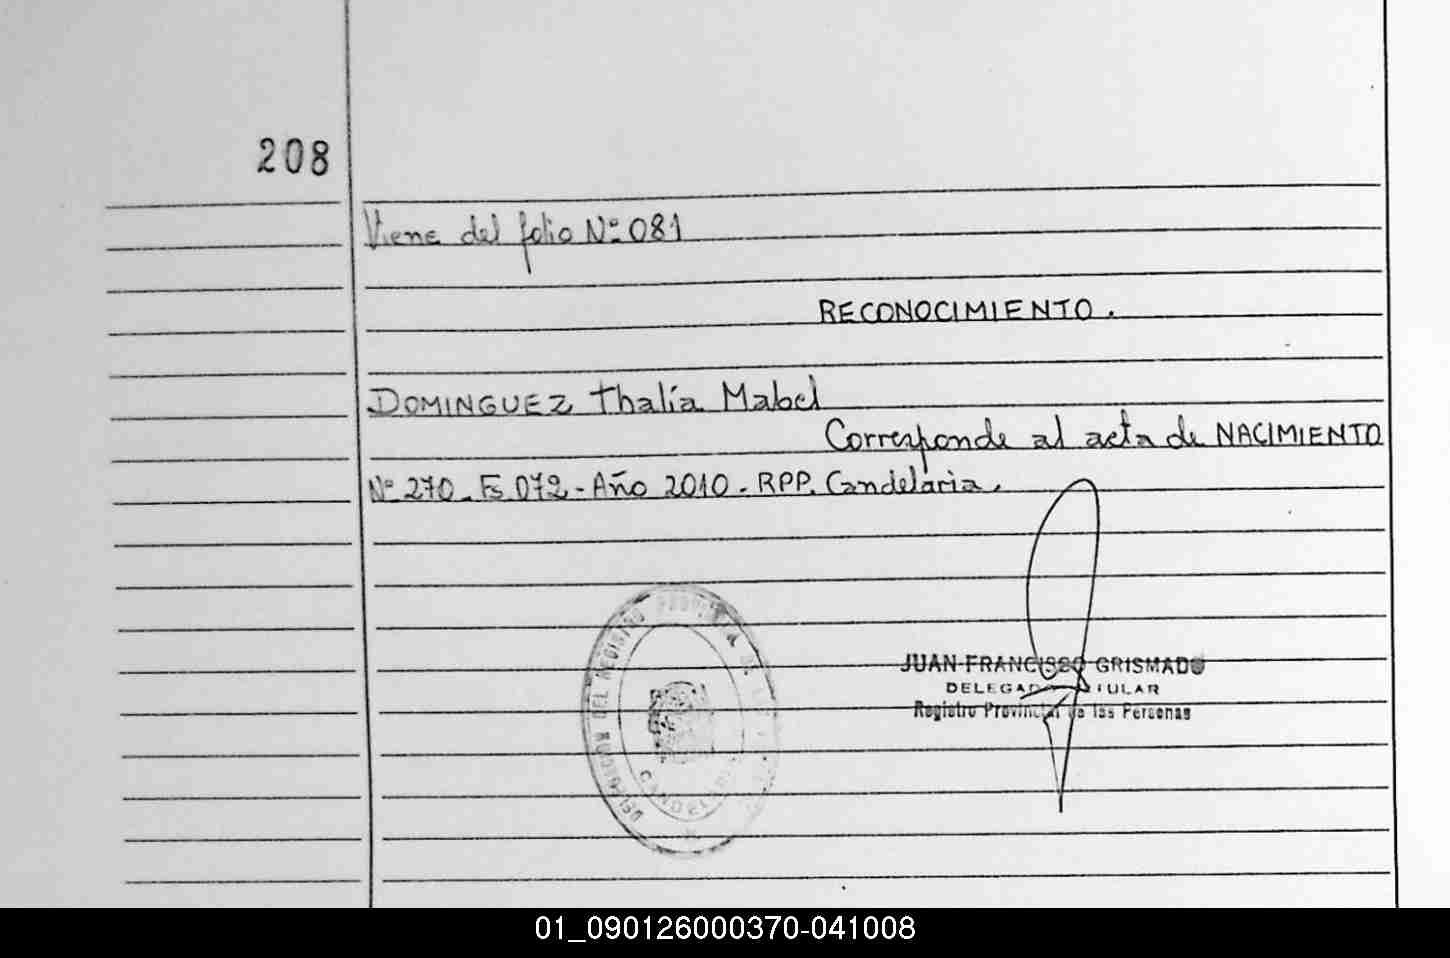 208
Viene del folio Nº 081
RECONOCIMIENTO.
DOMINGUEZ Thalía Mabel
Corresponde al acta de NACIMIENTO
Nº 270 - Fs 072 - Año 2010 - RPP. Candelaria.
DELEGACION DEL REGISTRO PROVINCIAL DE LAS
CANDELARIA
JUAN FRANCISCO GRISMADO
DELEGADO TITULAR
Registro Provincial de las Personas
01_090126000370-041008